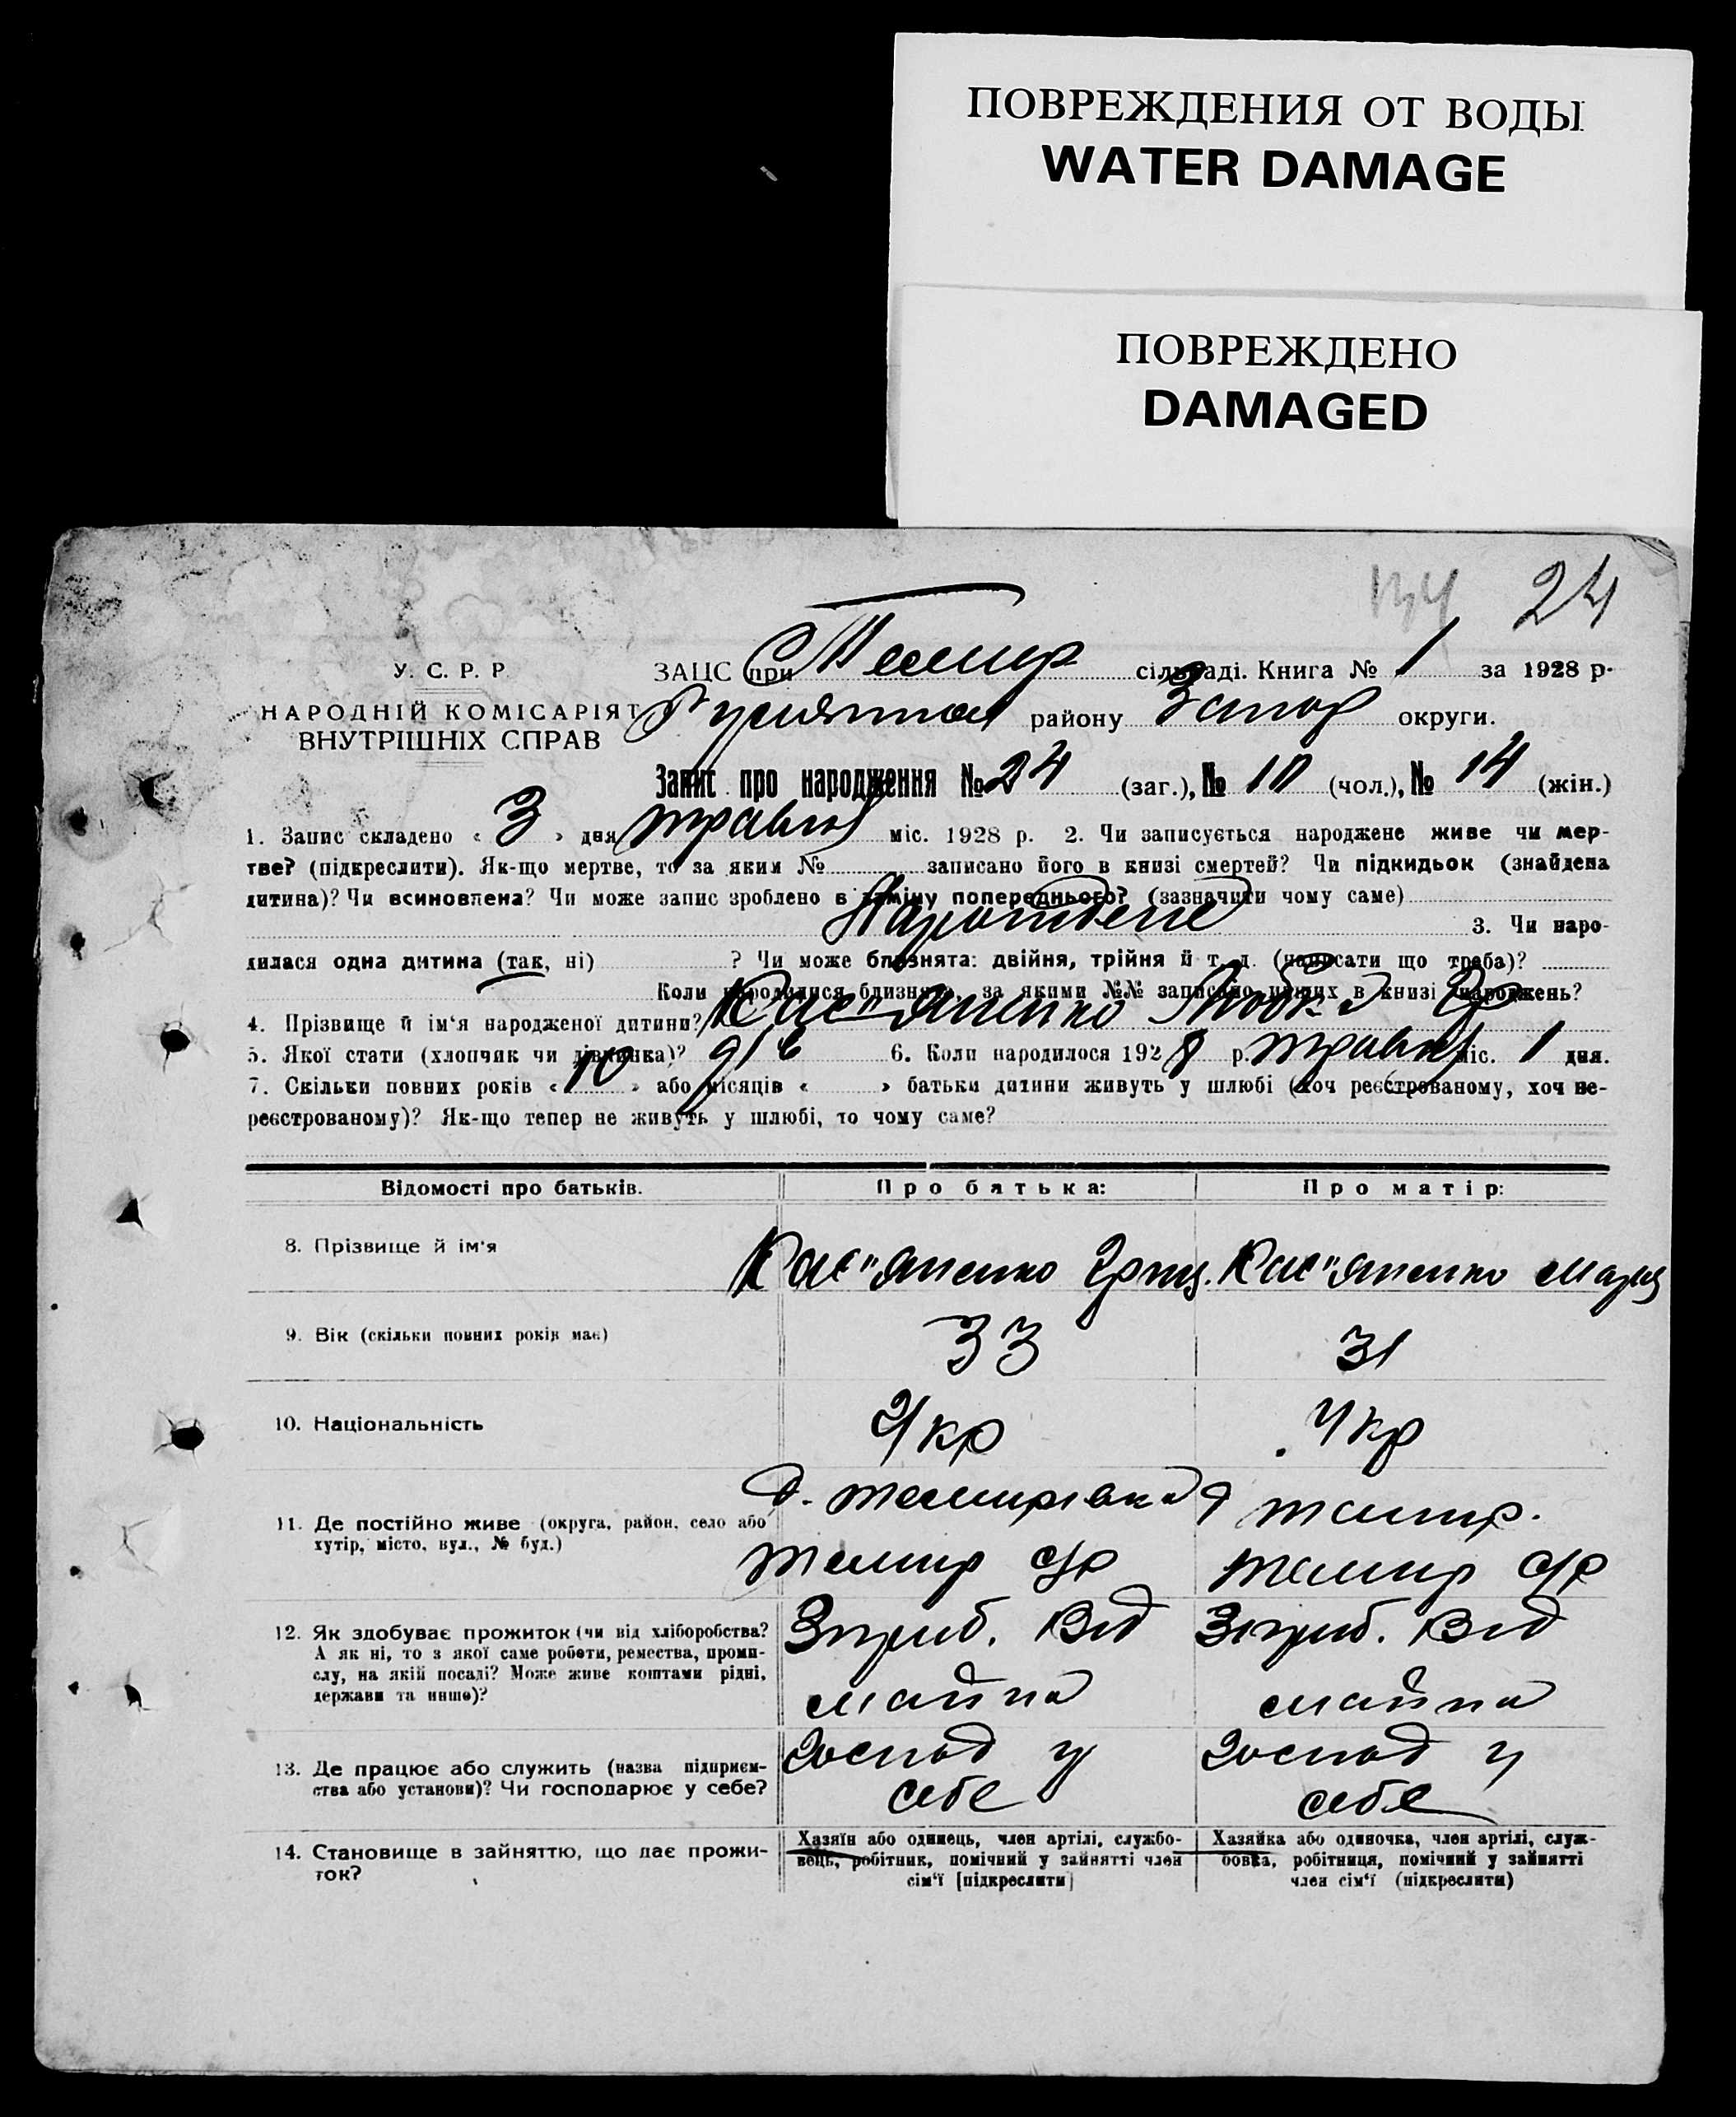 ПОВРЕЖДЕНИЯ ОТ ВОДЫ
WATER DAMAGE
ПОВРЕЖДЕНО
DAMAGED
134 24
У. С. Р. Р.
НАРОДНІЙ КОМІСАРІЯТ
ВНУТРІШНІХ СПРАВ
ЗАЦС при Темир сільраді. Книга № 1 за 1928 р.
району Запор округи.
Запис про народження № 24 (заг.), № 10 (чол.), № 14 (жін.)
1. Запис складено « 3 » дня травня міс. 1928 р. 2. Чи записується народжене живе чи мер-
тве? (підкреслити). Як-що мертве, то за яким № записано його в книзі смертей? Чи підкидьок (знайдена
дитина)? Чи всиновлена? Чи може запис зроблено в заміну попереднього? (зазначити чому саме)
Народжене 3. Чи наро-
дилася одна дитина (так, ні) ? Чи може близнята: двійня, трійня й т. д. (написати що треба)?
Коли народилися близнята, за якими №№ записано інших в книзі народжень?
4. Прізвище й ім'я народженої дитини? Кас"яненко Любка Гр
5. Якої стати (хлопчик чи дівчинка)? дів 6. Коли народилося 1928 р. травня міс. 1 дня.
7. Скільки повних років « 10 » або місяців « » батьки дитини живуть у шлюбі (хоч реєстрованому, хоч не-
реєстрованому)? Як-що тепер не живуть у шлюбі, то чому саме?
Відомості про батьків. Про батька: Про матір:
8. Прізвище й ім'я Кас"яненко Гриц. Кас"яненко Мариц
9. Вік (скільки повних років має) 33 31
10. Національність Укр Укр
д. Темирівка д Темир.
11. Де постійно живе (округа, район, село або
хутір, місто, вул., № буд.)
Темир с/р Темир с/р
12. Як здобуває прожиток (чи від хліборобства? Зприб. Від Зприб. Від
А як ні, то з якої саме роботи, ремества, проми-
слу, на якій посаді? Може живе коштами рідні,
держави та инше)? майна майна
13. Де працює або служить (назва підприєм- Господ у Господ у
ства або установи)? Чи господарює у себе? себе себе
14. Становище в зайняттю, що дає прожи-
ток?
Хазяїн або одинець, член артілі, службо-
вець, робітник, помічний у зайнятті член
сім'ї [підкреслити]
Хазяйка або одиночка, член артілі, служ-
бовка, робітниця, помічний у зайнятті
член сім'ї (підкреслити)